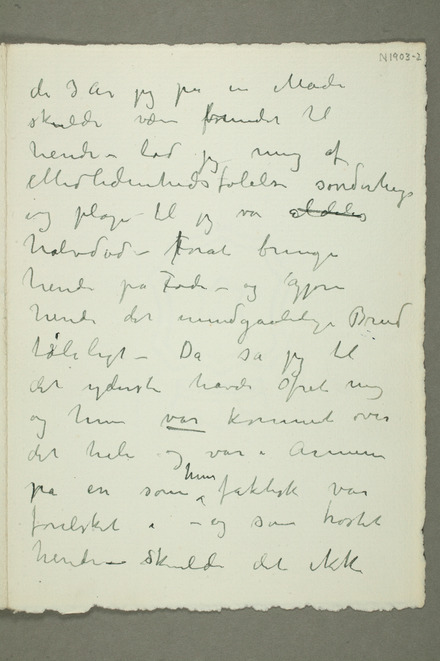 N1903-2
de 3 År jeg på en Måde
skulde være bundet til
hende – lod jeg mig af
Medlidenhedsfølelse sønderhugge
og plage til jeg var aldeles
halvdød – Forat bringe
hende på Fode – og gjøre
hende det uundgaaelige Brud
tåleligt – Da så jeg til
det yderste havde ofret mig
og hun var kommet over
det hele og var i Armene
på en som hun faktisk var
forelsket i – og som trøstet
hende – skulde det ikke